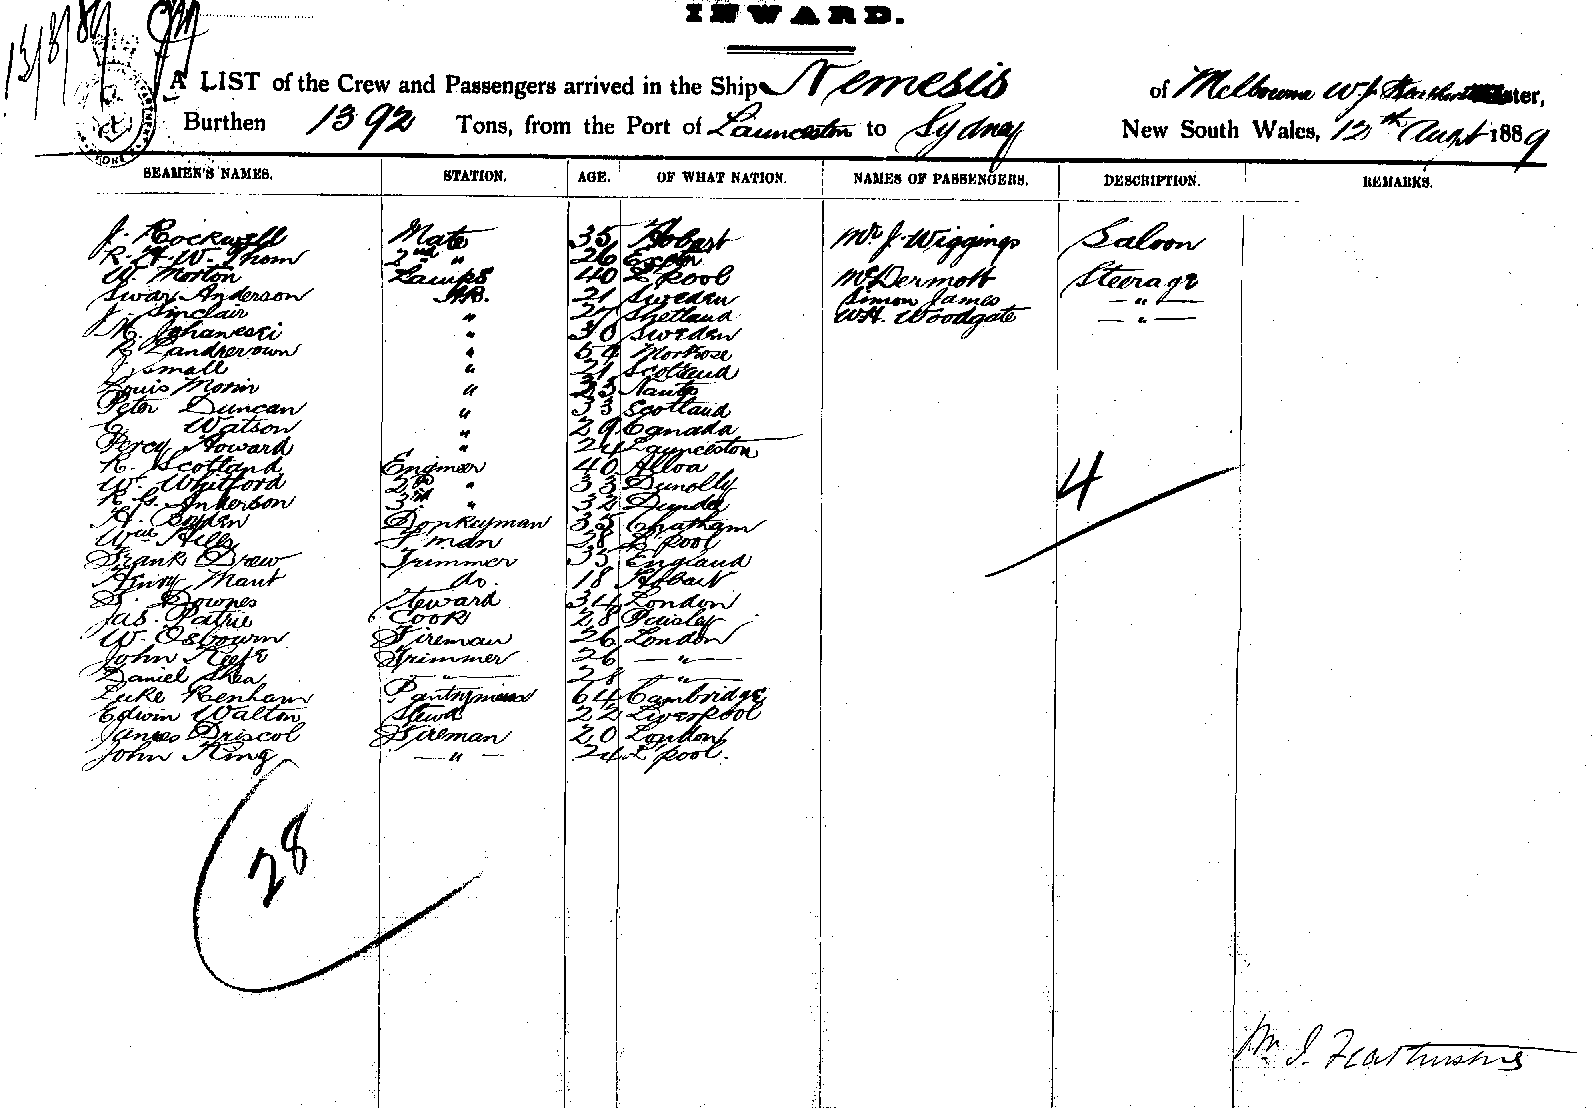 13/8/89
INWARD.
A LIST of the Crew and Passengers arrived in the Ship Nemesis of Melbourne W. J.
Burthen 1392 Tons, from the Port of Launceston to Sydney New South Wales, 12th Augst 1889
SEAMEN'S NAMES. STATION. AGE. OF WHAT NATION. NAMES OF PASSENGERS. DESCRIPTION. REMARKS.
J. Rockwell Mate 35 Hobart Mr J. Wiggings Saloon
R. H. W. Thom 2nd " 26
W. Morton Lamps 40 L'pool McDermott Steerage
Swan Anderson A.B. 21 Sweden Simon James — " —
J. Sinclair " 27 Shetland W. H. Woodgate — " —
" 30 Sweden
R. " 54 Montrose
J. Small " 21 Scotland
Louis Morin " 23 Nantes
Peter Duncan " 33 Scotland
C. Watson " 29 Canada
Percy Howard " 24 Launceston
R. Scotland Engineer 40 Alloa
W. Whitford 2nd " 33 Dunolly
R. G. Anderson 3rd " 32 Dundee
H. Donkeyman 35 Chatham
Wm Hills F'man 28 L'pool
Frank Drew Trimmer 33 England
Henry Mant do. 18 Hobart
S. Downes Steward 34 London
Jas. Patrie Cook 28 Paisley
W. Osbourn Fireman 26 London
John Keefe Trimmer 26 — " —
Daniel Shea — " — 28 — " —
Luke Renham Pantryman 64 Cambridge
Edwin Walton Stewd 22 Liverpool
James Driscol Fireman 20 London
John King — " — 24 L'pool.
4
28